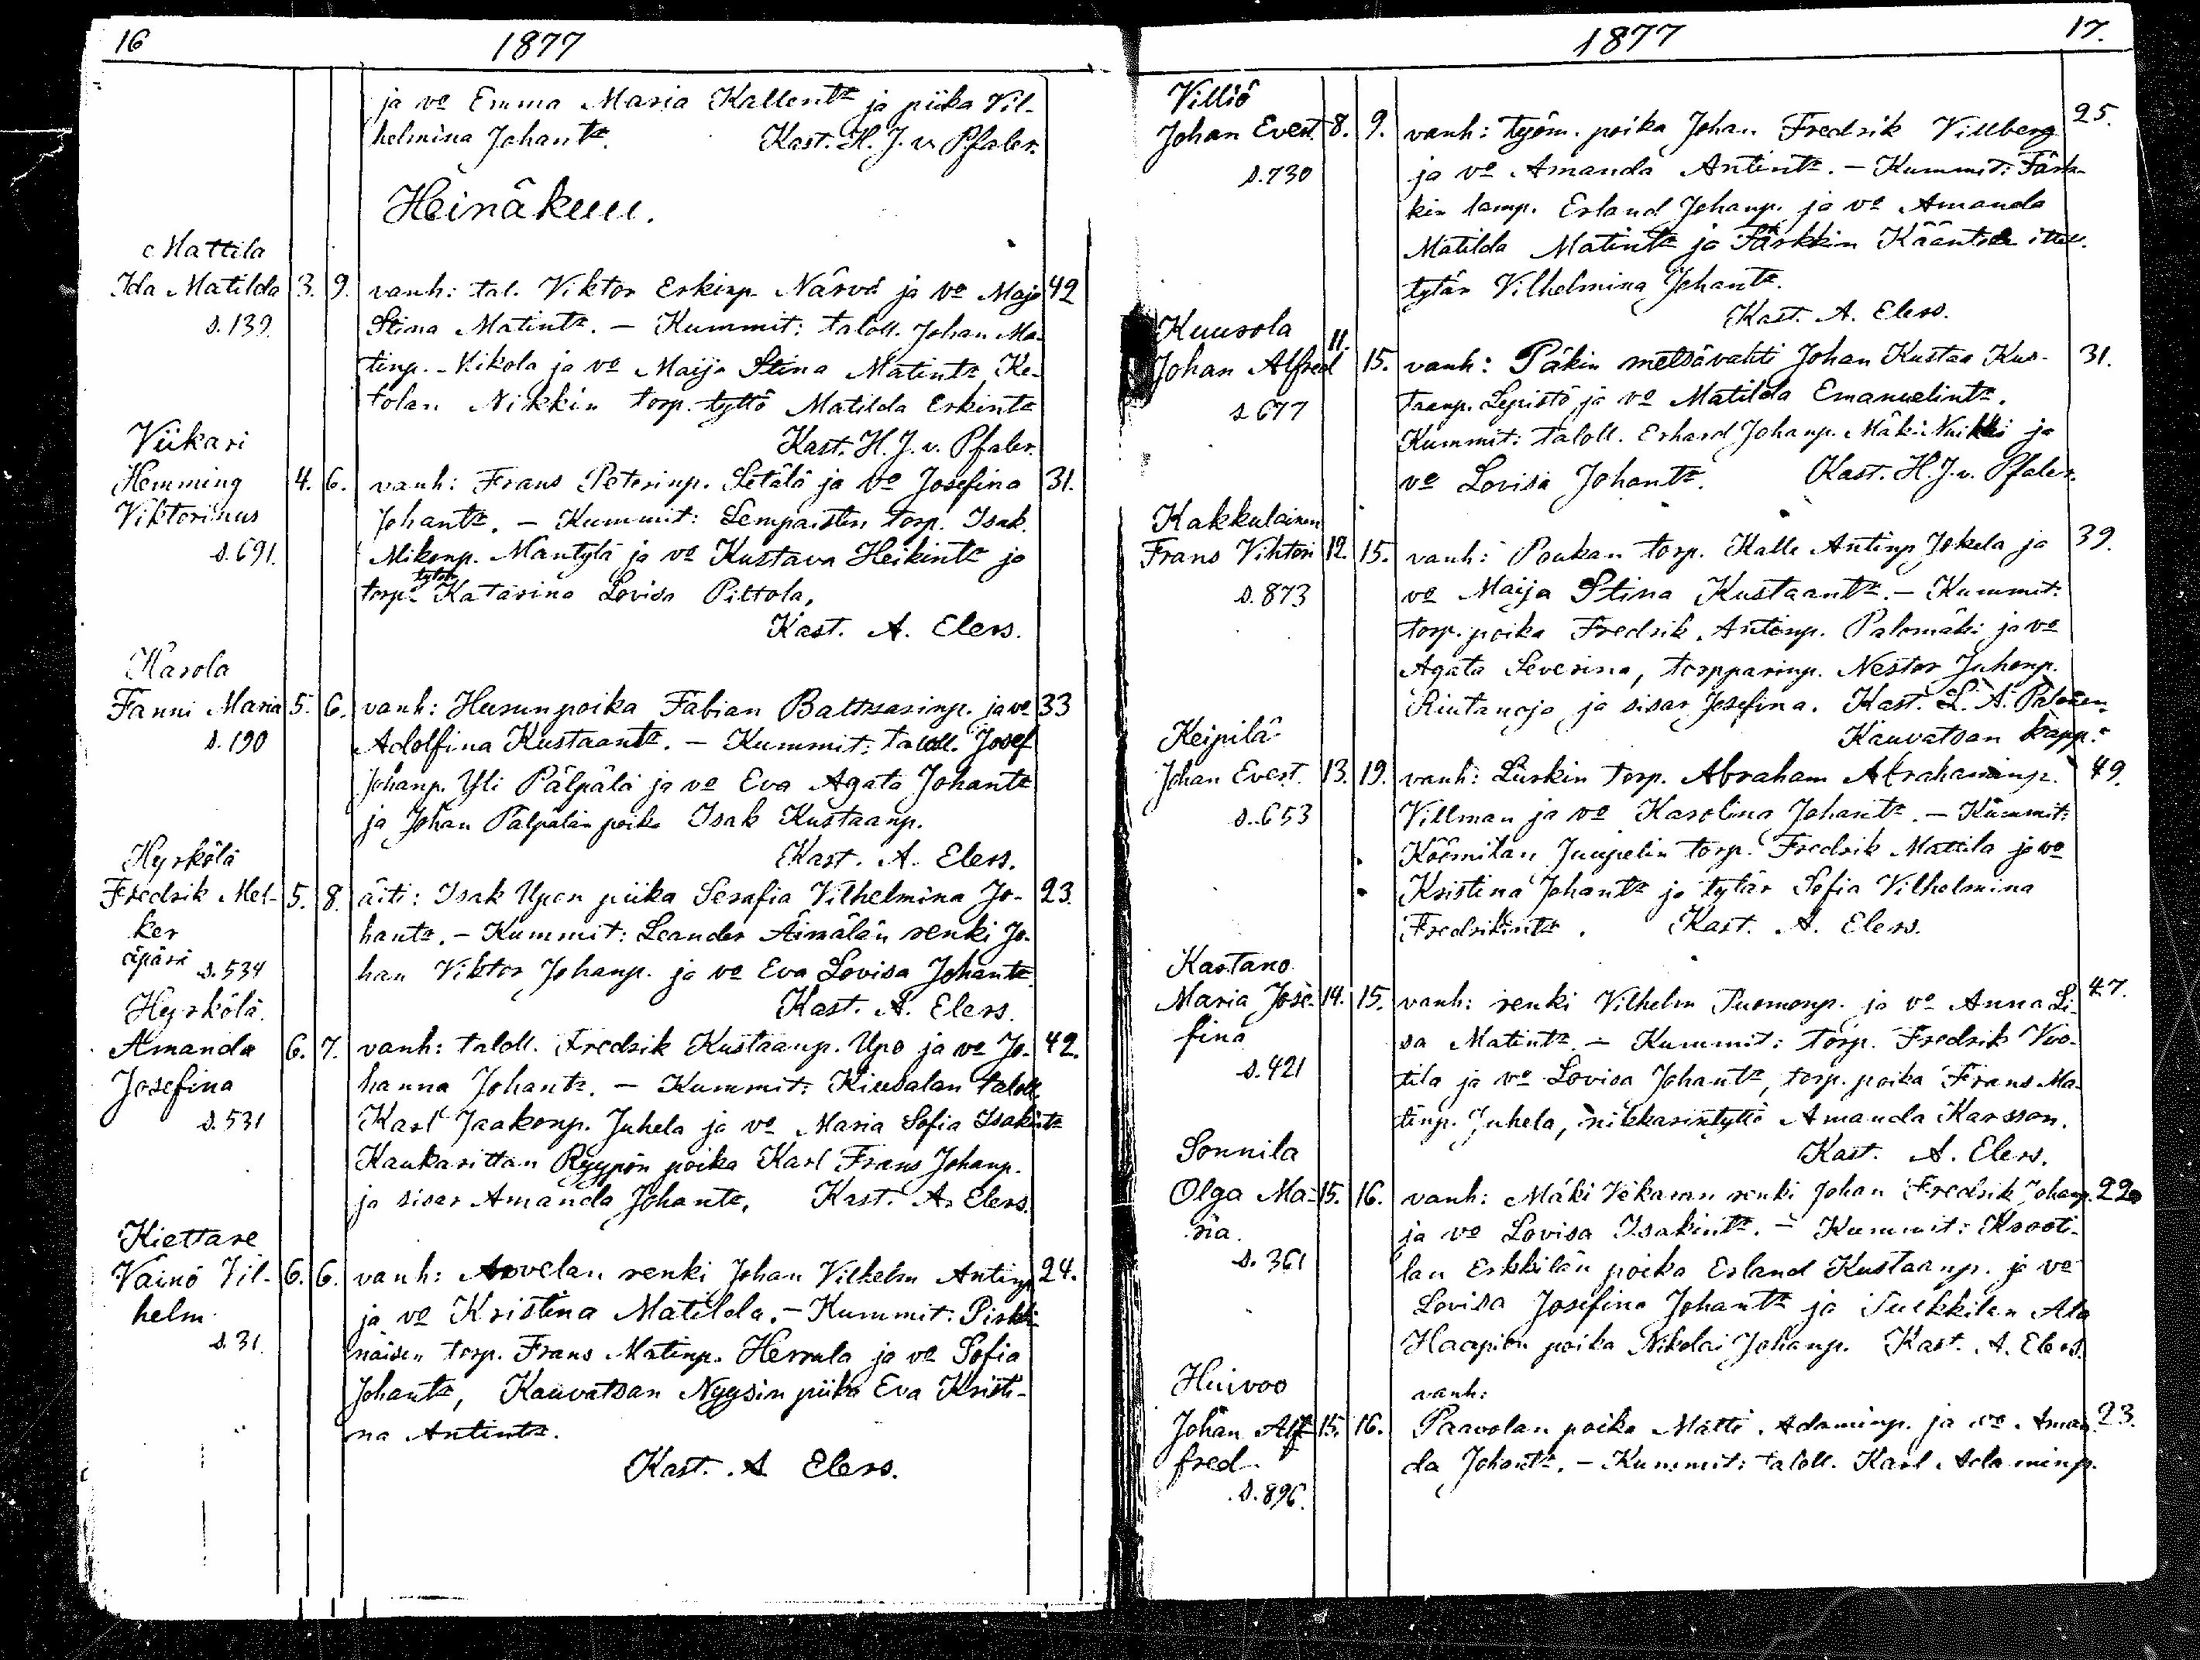 16
1877
ja vo Emma Maria Kallentr ja piika Vil-
helmina Johantr. Kast. H. J. v. Pfaler.
Heinäkuu.
Mattila
Ida Matilda 3. 9. vanh: tal. Viktor Erkinp. Närvä ja vo Maja 42
s. 139. Stina Matintr. – Kummit: taloll. Johan Ma-
tinp. Nikola ja vo Maija Stina Matintr, Ke-
tolan Nikkin torp. tyttö Matilda Erkintr
Viikari Kast. H. J. v. Pfaler.
Hemming 4. 6. vanh: Frans Peterinp. Setälä ja vo Josefina 31.
Viktorinus Johantr. – Kummit: Lempaisten torp. Isak
s. 691. Mikonp. Mäntylä ja vo Kustava Heikintr ja
torp. tytär Katarina Lovisa Piltola,
Kast. A. Elers.
Karola
Fanni Maria 5. 6. vanh: Hurunpoika Fabian Baltzarinp. ja vo 33
s. 190 Adolfina Kustaantr. – Kummit: taloll. Josef
Johanp. Yli Pälpälä ja vo Eva Agata Johantr
ja Johan Pälpälän poika Isak Kustaanp.
Hyrkölä Kast. A. Elers.
Fredrik Mel- 5. 8. äiti: Isak Upon piika Serafia Vilhelmina Jo- 23.
ker hantr. – Kummit: Leander Äimälän renki Jo-
äpärä s. 534 han Viktor Johanp. ja vo Eva Lovisa Johantr.
Hyrkölä. Kast. A. Elers.
Amanda 6. 7. vanh: taloll. Fredrik Kustaanp. Upo ja vo Jo- 42.
Josefina hanna Johantr. – Kummit: Kiusalan taloll.
s. 531 Karl Jaakonp. Juhela ja vo Maria Sofia Isakintr
Kaukarittan Ryypön poika Karl Frans Johanp.
ja sisar Amanda Johantr, Kast. A. Elers.
Kiettare
Väinö Vil- 6. 6. vanh: Arvelan renki Johan Vilhelm Antinp. 24.
helm ja vo Kristina Matilda. – Kummit: Pirkki-
s. 31. näisen torp. Frans Matinp. Herrala ja vo Sofia
Johantr, Kauvatsan Nyysin piika Eva Kristi-
na Antintr.
Kast. A Elers.
1877
17.
Villiö
Johan Evert. 8. 9. vanh: työm. poika Johan Fredrik Villberg 25.
s. 730 ja vo Amanda Antintr. – Kummit: Färk-
kin lamp. Erland Johanp. ja vo Amanda
Matilda Matintr ja Färkkin Kääntee ittel.
tytär Vilhelmina Johantr.
Kast. A. Elers.
Kuurola
Johan Alfred 11. 15. vanh: Päkin metsävahti Johan Kustaa Kus- 31.
s 677 taanp. Lepistö ja vo Matilda Emanuelintr.
Kummit: taloll. Erhard Johanp. Mäki-Nuikki ja
vo Lovisa Johantr. Kast. H. J. v. Pfaler.
Kakkulainen
Frans Vihtori 12. 15. vanh: Poukan torp. Kalle Antinp. Jokela ja 39.
s. 873 vo Maija Stina Kustaantr. – Kummit:
torp. poika Fredrik Antinp. Palomäki ja vo
Agata Severina, torpparinp. Nestor Juhonp.
Rintanoja ja sisar Josefina. Kast. L. A. Palonen
Keipilä Kauvatsan kapp.
Johan Evert. 13. 19. vanh: Lurkin torp. Abraham Abrahaminp. 49.
s. 653 Villman ja vo Karolina Johantr. – Kummit:
Köömilän Juupelin torp. Fredrik Mattila ja vo
Kristina Johantr ja tytär Sofia Vilhelmina
Fredrikintr. Kast. A. Elers.
Kastano
Maria Jose- 14. 15. vanh: renki Vilhelm Tuomonp. ja vo Anna Li- 47.
fina sa Matintr. – Kummit: torp. Fredrik Vuo-
s. 421 tila ja vo Lovisa Johantr, torp. poika Frans Ma-
tinp. Juhela, nikkarintyttö Amanda Karsson.
Sonnila Kast. A. Elers.
Olga Ma- 15. 16. vanh: Mäki Vekaran renki Johan Fredrik Johanp. 22.
ria. ja vo Lovisa Isakintr. – Kummit: Krooti-
s. 361 lan Erkkilän poika Erland Kustaanp. ja vo
Lovisa Josefina Johantr ja Suikkilan Ala
Haapion poika Nikolai Johanp. Kast. A. Elers.
Huivoo vanh:
Johan Alf- 15. 16. Paavolan poika Matti Adaminp. ja vo Aman- 23.
fred da Johantr. – Kummit: taloll. Karl Adaminp.
s. 896.